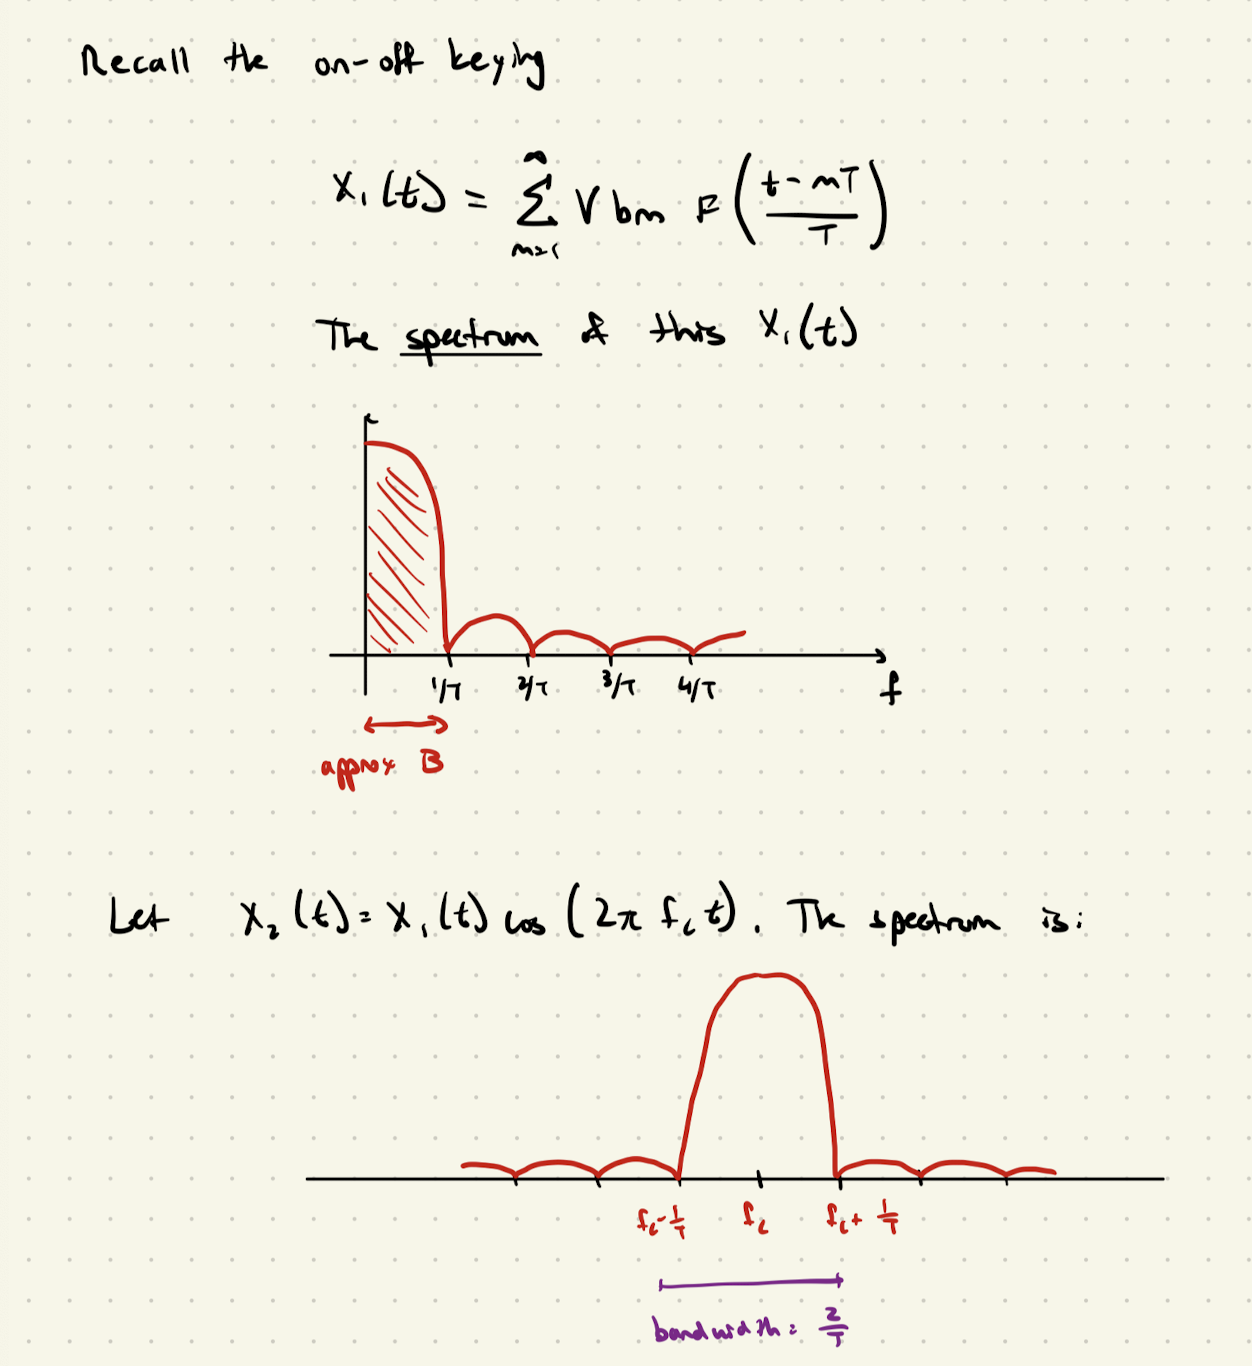 Recall the on-off keying
x₁(t) = ∑_{m=1}^{∞} V bm F((t-mT)/T)
The spectrum of this x₁(t)
1/T 2/T 3/T 4/T f
approx B
Let x₂(t) = x₁(t) cos (2π f_c t). The spectrum is:
f_c - 1/T f_c f_c + 1/T
bandwidth = 2/T